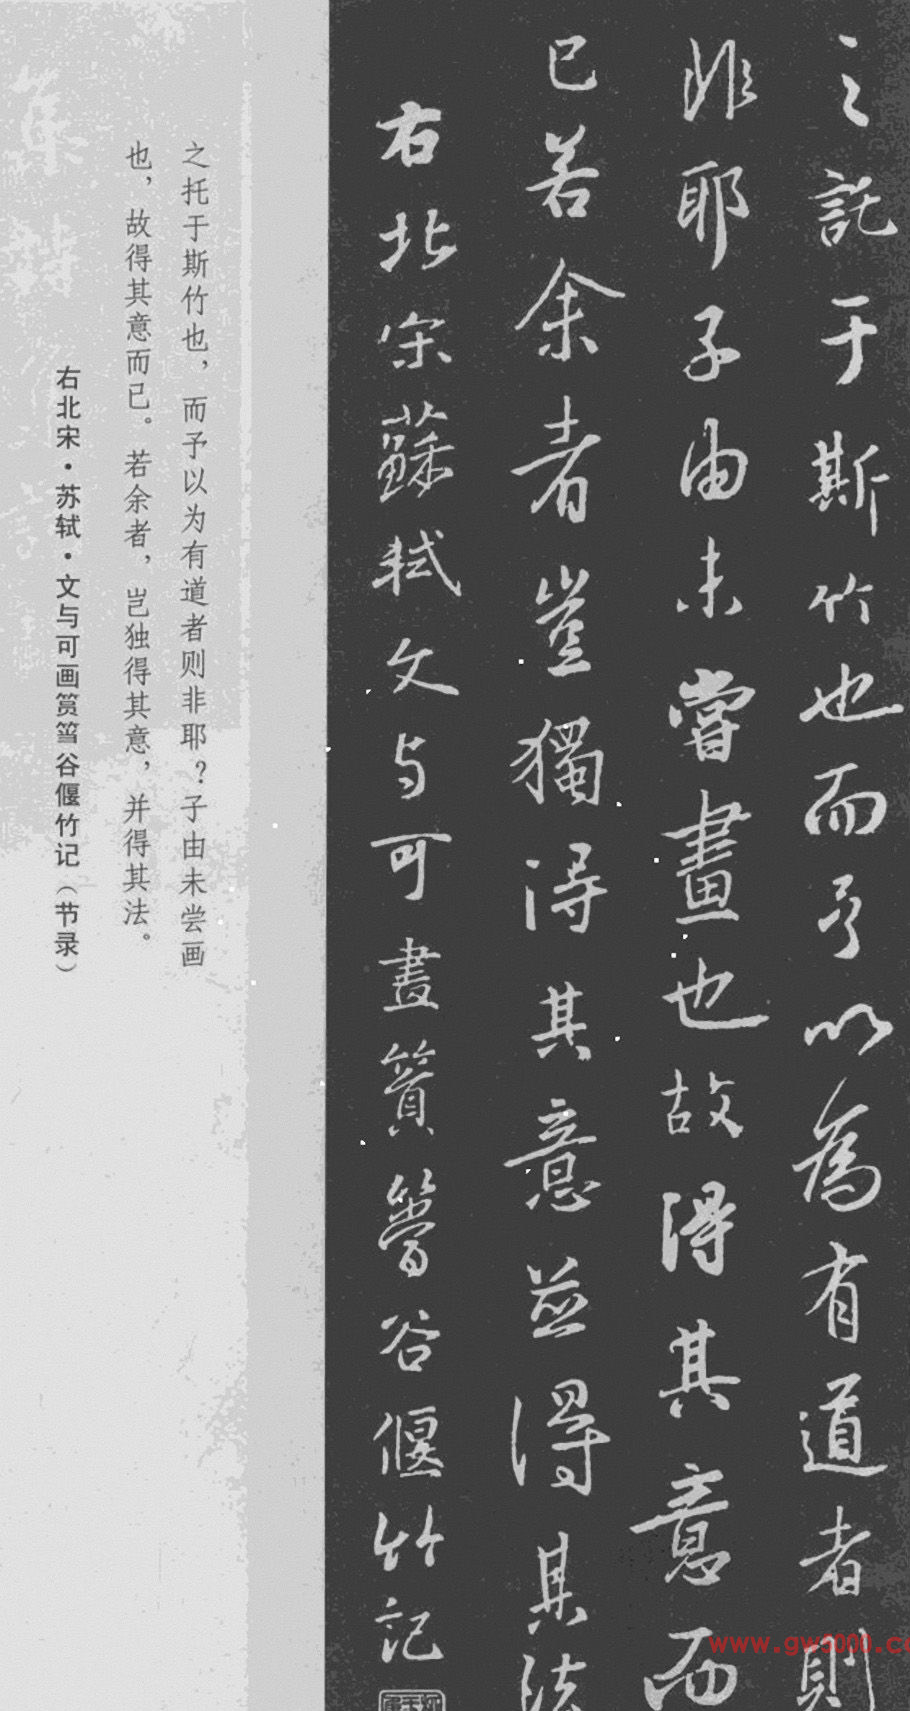 之託于斯竹也而予以為有道者則
非耶子由未嘗畫也故得其意而
已若余者豈獨得其意並得其法
右北宋蘇軾文与可畫篔簹谷偃竹記
之托于斯竹也，而予以为有道者则非耶？子由未尝画
也，故得其意而已。若余者，岂独得其意，并得其法。
右北宋·苏轼·文与可画筼筜谷偃竹记（节录）
www.gw5000.c